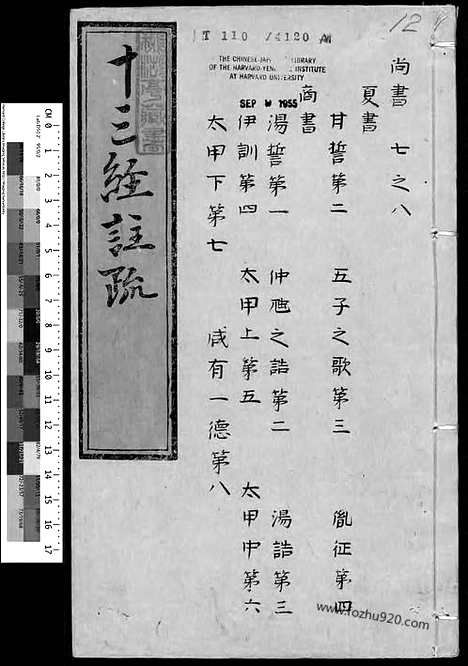 12
T 110 /4120
THE CHINESE-JAPANESE LIBRARY
OF THE HARVARD-YENCHING INSTITUTE
AT HARVARD UNIVERSITY
SEP 9 1955
尚書 七之八
夏書
甘誓第二 五子之歌第三 胤征第四
商書
湯誓第一 仲虺之誥第二 湯誥第三
伊訓第四 太甲上第五 太甲中第六
太甲下第七 咸有一德第八
十三經註疏
CM 0 1 2 3 4 5 6 7 8 9 10 11 12 13 14 15 16 17
www.fozhu920.com